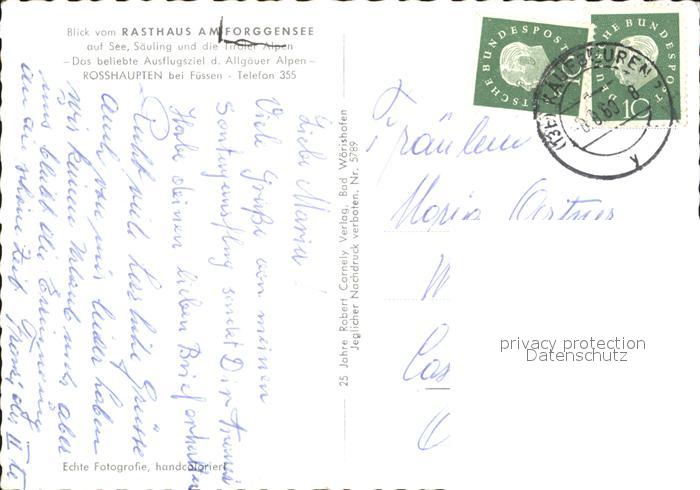 Blick vom RASTHAUS AM FORGGENSEE
auf See, Säuling und die Tiroler Alpen
-Das beliebte Ausflugsziel d. Allgäuer Alpen-
ROSSHAUPTEN bei Füssen - Telefon 355
Liebe Maria!
Viele Grüße von meinem
Sonntagsausflug sendet Dir
Habe deinen lieben Brief erhalten
Recht viele herzliche Grüsse
Auch von mir leider haben
wir keinen Urlaub mehr, aber
uns bleibt die Erinnerung
an die schöne Zeit.
Echte Fotografie, handcoloriert
25 Jahre Robert Cornely Verlag, Bad Wörishofen
Jeglicher Nachdruck verboten. Nr. 5789
DEUTSCHE BUNDESPOST
10
DEUTSCHE BUNDESPOST
10
KAUFBEUREN
.8.60-8
Fräulein
Maria
privacy protection
Datenschutz